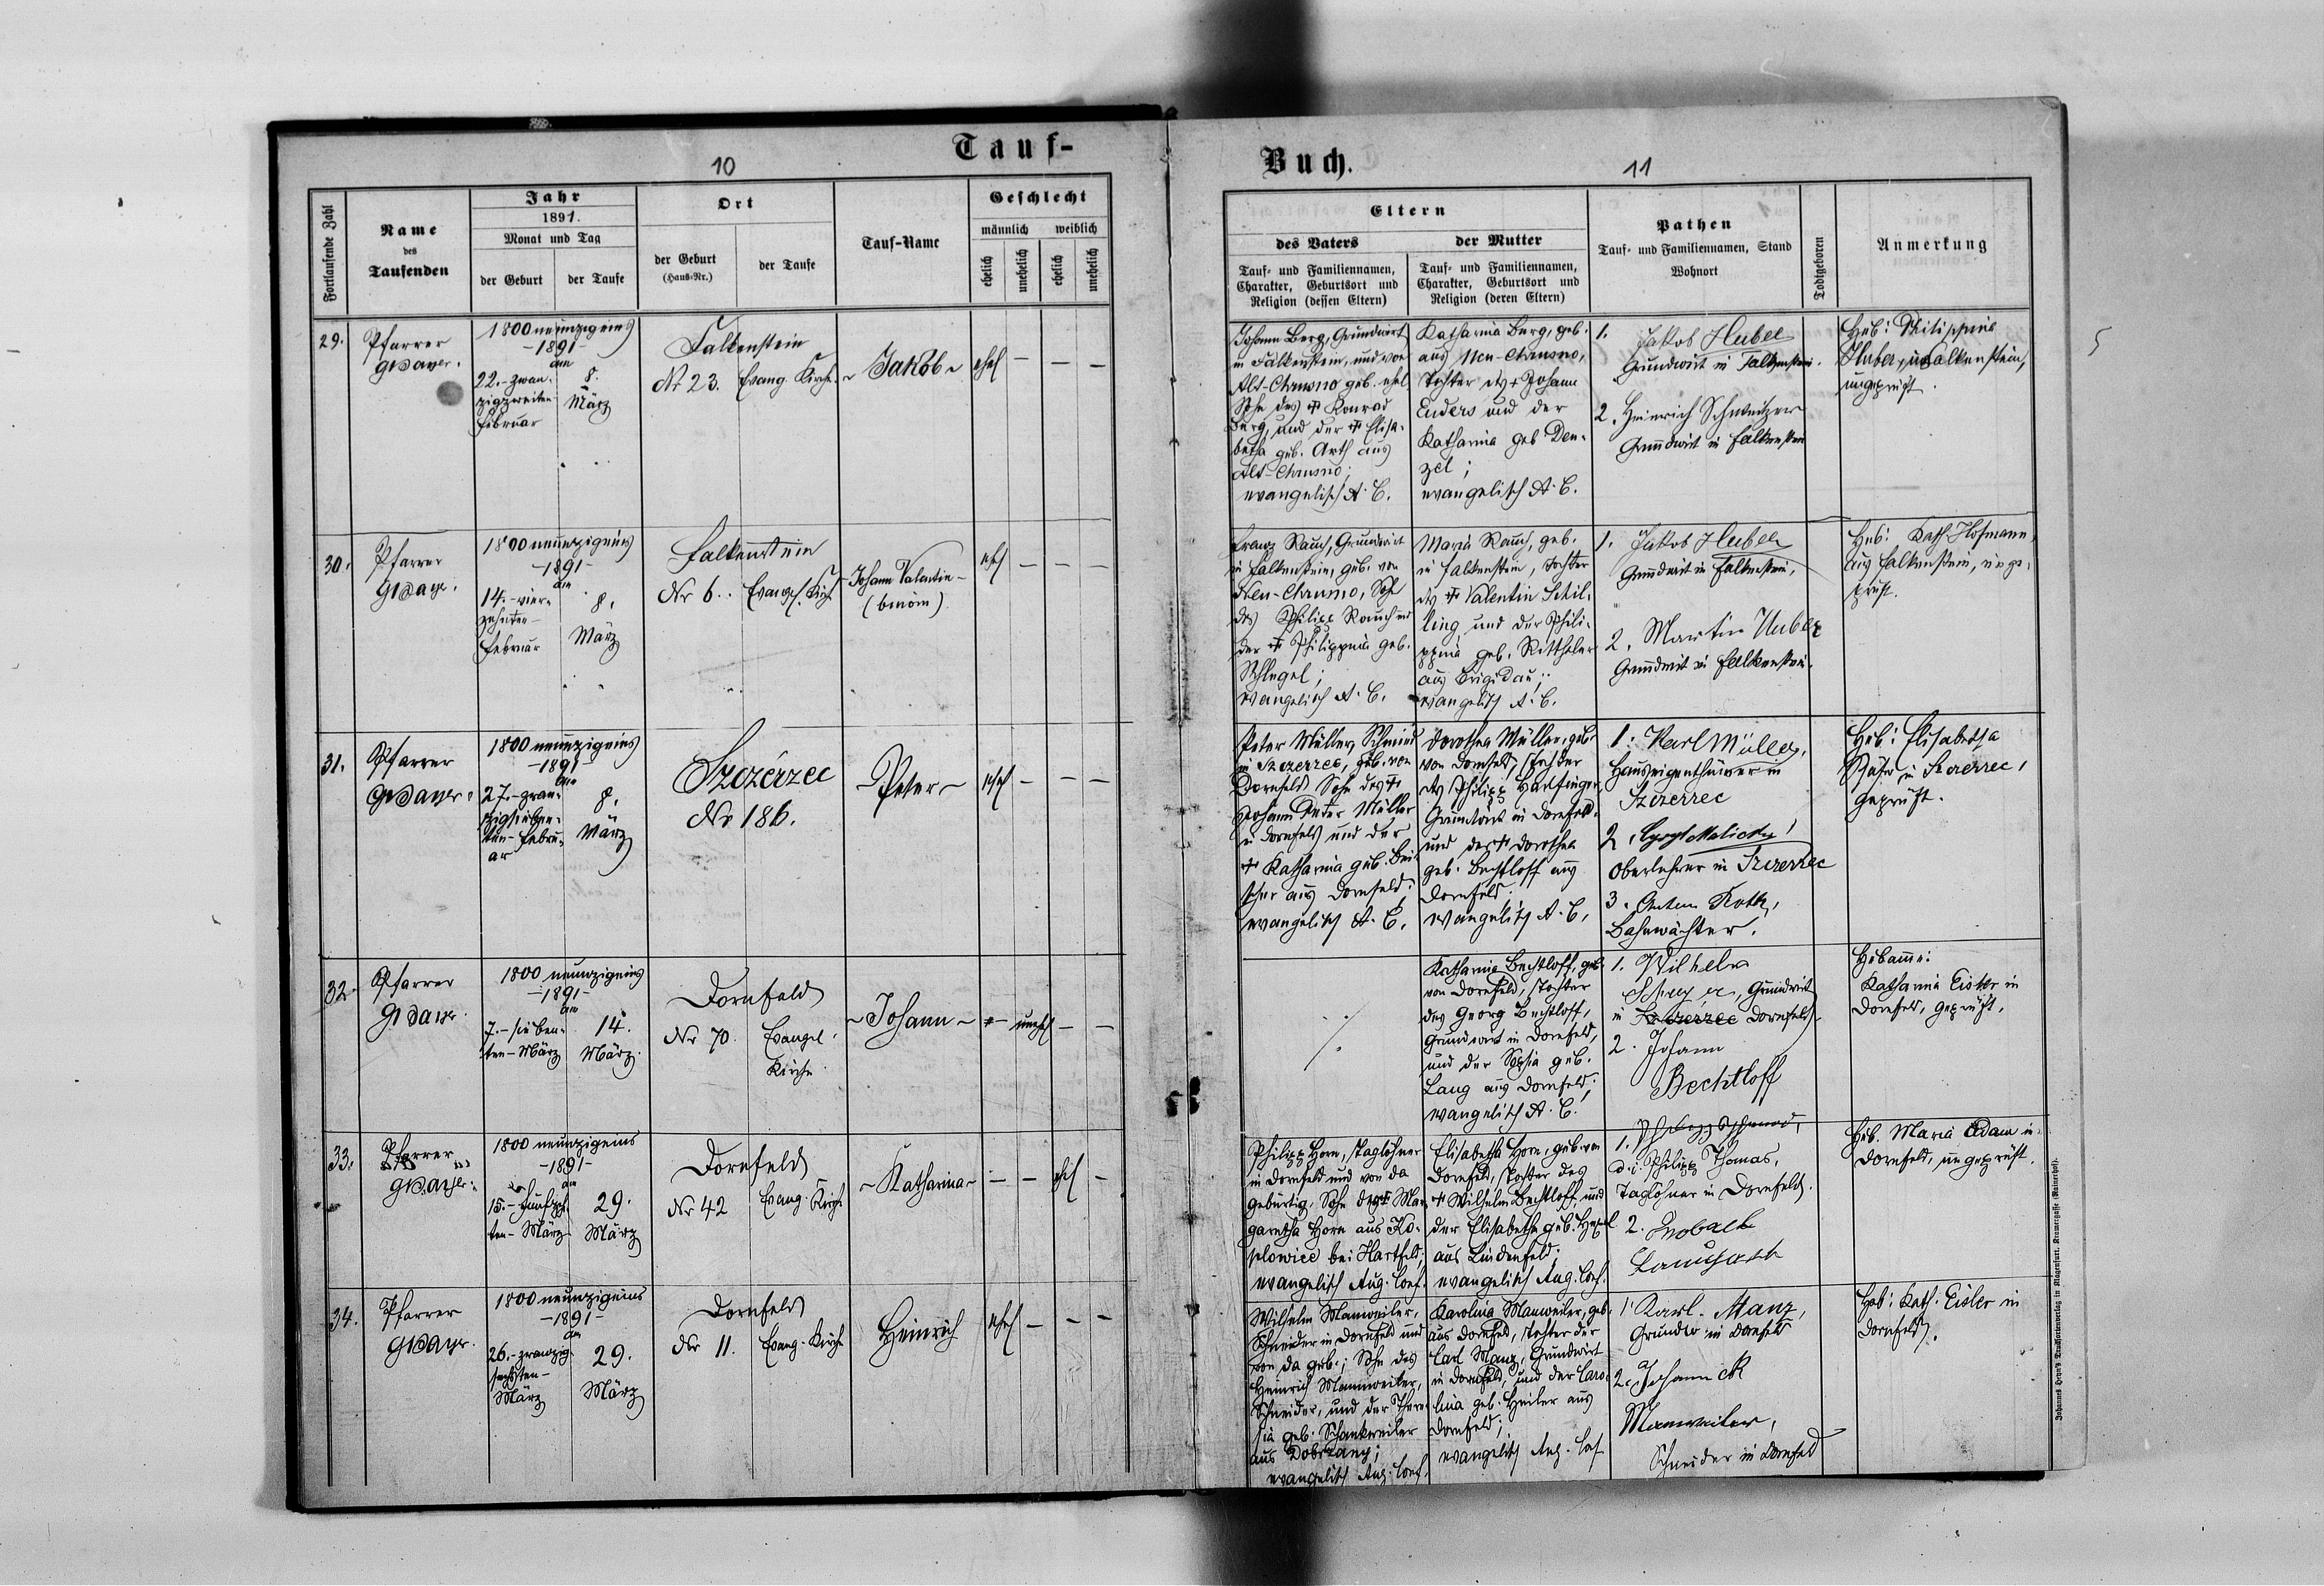 Tauf-
10
Fortlaufende Zahl
Name
des
Taufenden
Jahr
1891.
Monat und Tag
der Geburt
der Taufe
Ort
der Geburt
(Haus-Nr.)
der Taufe
Tauf-Name
Geschlecht
männlich
weiblich
ehelich
unehelich
ehelich
unehelich
29.
Pfarrer
1800 neunzigeins
-1891-
am
22.- zwan-
zigzweiten
Februar
8.
März
Falkenstein
Nr 23.
Evang. Kirche
- Jakob -
ehel
-
-
-
30.
Pfarrer
1800 neunzigeins
-1891-
am
14.- vier-
zehnten-
Februar
8.
März
Falkenstein
Nr 6.
Evangel. Kirche
Johann Valentin-
(binom)
ehel
-
-
-
31.
Pfarrer
1800 neunzigeins
-1891-
am
27.- zwan-
zigsieben-
ten- Febru-
ar
8.
März
Szczérzec
Nr 186.
- Peter -
ehel
-
-
-
32.
Pfarrer
1800 neunzigeins
-1891-
am
7.- sieben-
ten- März
14.
März.
Dornfeld
Nr 70.
Evangel.
Kirche
- Johann -
-
unehel
-
-
33.
Pfarrer
1800 neunzigeins
-1891-
am
15.- fünfzehn-
ten- März
29.
März
Dornfeld
Nr 42
Evang. Kirche
- Katharina -
-
-
ehel
-
34.
Pfarrer
1800 neunzigeins
-1891-
am
26.- zwanzig-
sechsten-
März
29.
März
Dornfeld
Nr 11.
Evang. Kirche
Heinrich
ehel
-
-
-
Buch.
11
Eltern
des Vaters
Tauf- und Familiennamen,
Charakter, Geburtsort und
Religion (dessen Eltern)
der Mutter
Tauf- und Familiennamen,
Charakter, Geburtsort und
Religion (deren Eltern)
Pathen
Tauf- und Familiennamen, Stand
Wohnort
Todtgeboren
Anmerkung
Johann Berg, Grundwirt
in Falkenstein, und von
Alt-Chrusno geb. ehel
Sohn des + Konrad
Berg, und der + Elisa-
betha geb. Arth aus
Alt-Chrusno;
evangelisch A. C.
Katharina Berg, geb.
aus Neu-Chrusno,
Tochter des + Johann
Enders und der
Katharina geb Den-
zel;
evangelisch A. C.
1. Jakob Huber
Grundwirt in Falkenstein.
2. Heinrich Schweitzer
Grundwirt in Falkenstein
Heb: Philippine
Huber, in Falkenstein,
ungeprüft.
Franz Rauch, Grundwirt
in Falkenstein, geb. von
Neu-Chrusno, Sohn
des Philipp Rauch und
der + Philippina geb.
Schlegel;
evangelisch A. C.
Maria Rauch, geb.
in Falkenstein, Tochter
des + Valentin Schil-
ling und der Phili-
ppina geb. Ritthaler
aus Brigidau;
evangelisch A. C.
1. Jakob Huber
Grundwirt in Falkenstein,
2. Martin Huber
Grundwirt in Falkenstein.
Heb: Kath Hofmann,
aus Falkenstein, unge-
prüft.
Peter Müller, Schmied
in Szczerzec, geb. von
Dornfeld Sohn des +
Johann Peter Müller
in Dornfeld und der
+ Katharina geb.
aus Dornfeld;
evangelisch A. C.
Dorothea Müller, geb.
von Dornfeld, Tochter
des Philipp
Grundwirt in Dornfeld
und der + Dorothea
geb. Bechtloff aus
Dornfeld.
evangelisch A. C.
1. Karl Müller,
Hauseigenthümer in
Szczerzec
2.
Oberlehrer in Szczerzec
3. Anton Roth,
Bahnwächter.
Heb: Elisabetha
in Szczerzec,
geprüft.
Katharina Bechtloff, geb.
von Dornfeld, Tochter
des Georg Bechtloff,
Grundwirt in Dornfeld,
und der Sophia geb.
Lang aus Dornfeld;
evangelisch A. C.
1. Wilhelm
Grundwirt
in Szczerzec Dornfeld.
2. Johann
Bechtloff
Hebamme:
Katharina Eisler in
Dornfeld, geprüft.
Philipp Horn, Taglöhner
in Dornfeld und von da
gebürtig, Sohn der + Mar-
garetha Horn aus
bei Hartfeld;
evangelisch Aug. Conf.
Elisabetha Horn, geb. von
Dornfeld, Tochter des
+ Wilhelm Bechtloff und
der Elisabetha geb.
aus Lindenfeld;
evangelisch Aug. Conf.
1.
d. i. Philipp Thomas,
Taglöhner in Dornfeld.
2.
Heb. Maria Adam in
Dornfeld, ungeprüft.
Wilhelm Manweiler,
Schneider in Dornfeld und
von da geb.; Sohn des
Heinrich Manweiler,
Schneider, und der There-
sia geb. Schankweiler
aus Dobrzany;
evangelisch Aug. Conf.
Karolina Manweiler, geb.
aus Dornfeld, Tochter der
Carl Manz, Grundwirt
in Dornfeld, und der Caro-
lina geb. Heiler aus
Dornfeld;
evangelisch Aug. Conf
1 Karl. Manz,
Grundw. in Dornfeld
2. Johann
Manweiler,
Schneider in Dornfeld
Heb: Kath. Eisler in
Dornfeld.
Johannes Heyn's Drucksortenverlag in Klagenfurt, Kramergasse (Rainerhof).